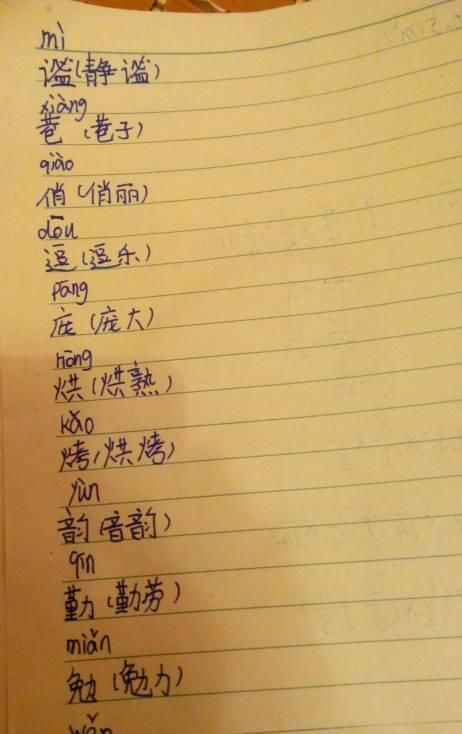 mì
谧(静谧)
xiàng
巷(巷子)
qiào
俏(俏丽)
dōu
逗(逗乐)
páng
庞(庞大)
hōng
烘(烘熟)
kǎo
烤(烘烤)
yùn
韵(音韵)
qín
勤(勤劳)
miǎn
勉(勉力)
wǎn